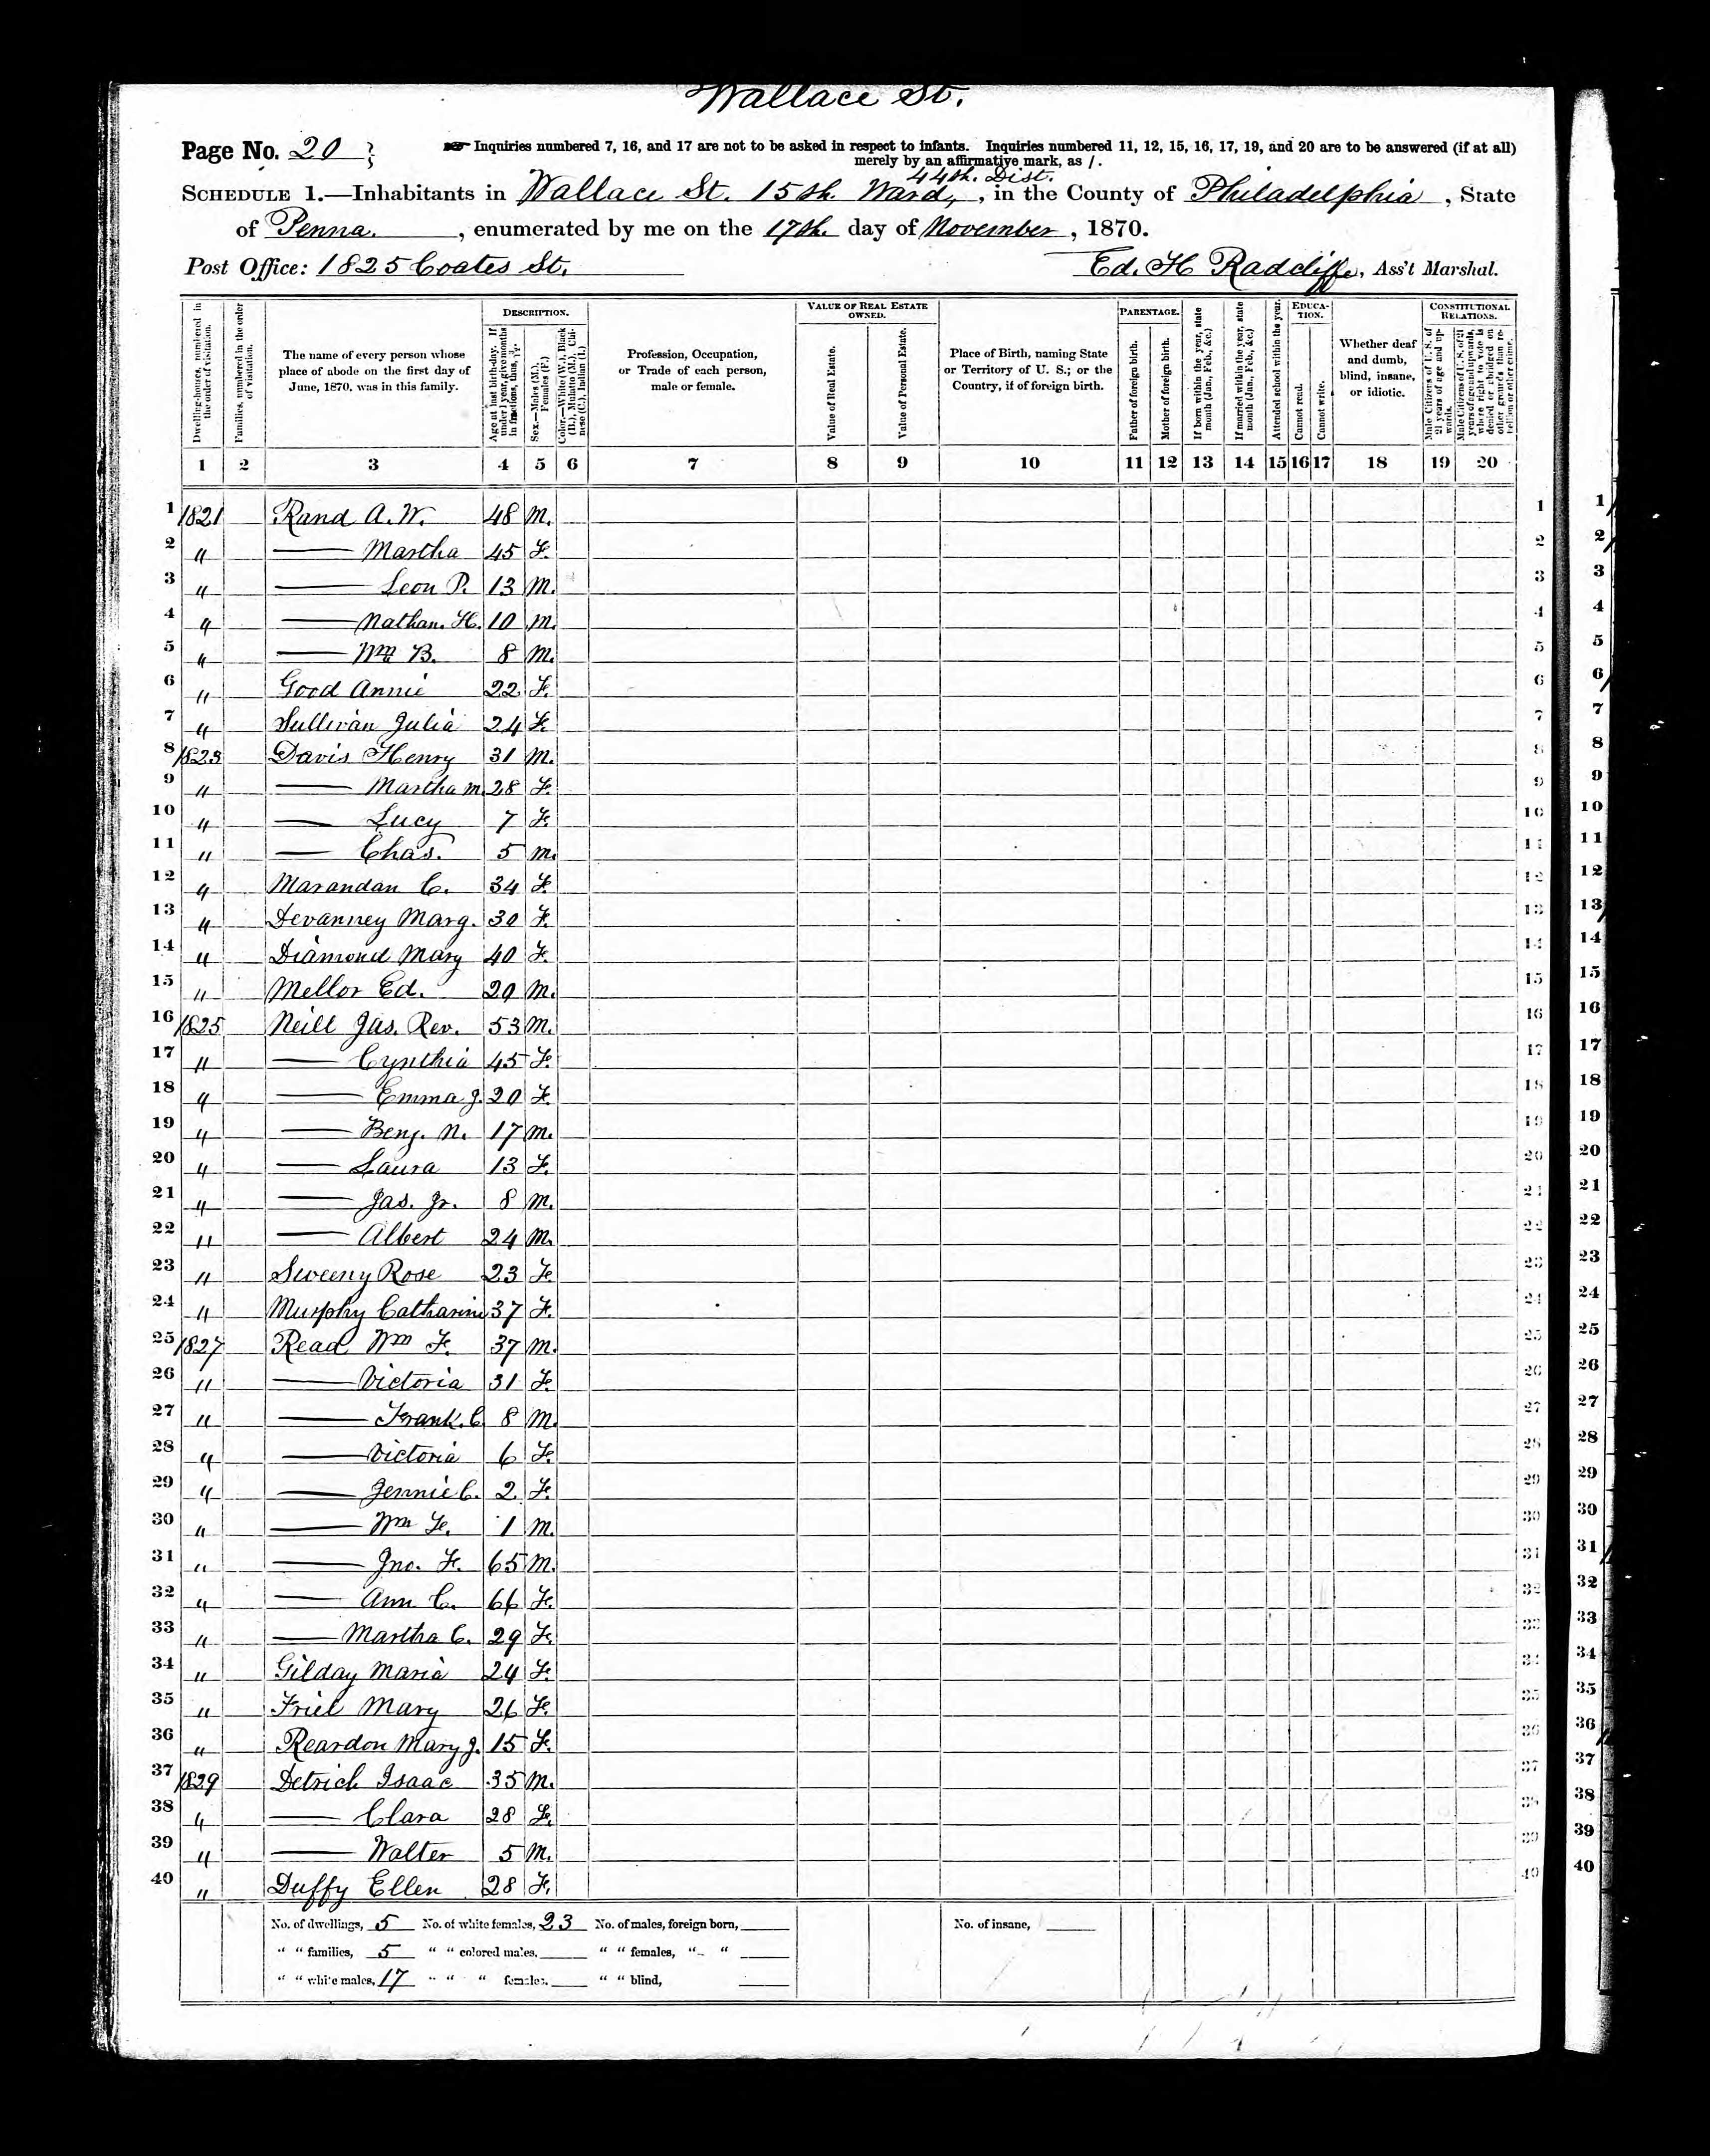 Wallace St.
Page No. 20
Inquiries numbered 7, 16, and 17 are not to be asked in respect to infants. Inquiries numbered 11, 12, 15, 16, 17, 19, and 20 are to be answered (if at all)
merely by an affirmative mark, as /.
44th. Dist.
SCHEDULE 1.—Inhabitants in Wallace St. 15th. Ward, , in the County of Philadelphia , State
of Penna. , enumerated by me on the 17th. day of November , 1870.
Post Office: 1825 Coates St. Ed. H Radcliffe, Ass't Marshal.
Dwelling-houses, numbered in the order of visitation.
Families, numbered in the order of visitation.
The name of every person whose place of abode on the first day of June, 1870, was in this family.
DESCRIPTION.
Age at last birth-day. If under 1 year, give months in fractions, thus,
Sex.—Males (M.), Females (F.)
Color.—White (W.), Black (B.), Mulatto (M.), Chinese (C.), Indian (I.)
Profession, Occupation, or Trade of each person, male or female.
VALUE OF REAL ESTATE OWNED.
Value of Real Estate.
Value of Personal Estate.
Place of Birth, naming State or Territory of U. S.; or the Country, if of foreign birth.
PARENTAGE.
Father of foreign birth.
Mother of foreign birth.
If born within the year, state month (Jan., Feb., &c.)
If married within the year, state month (Jan., Feb., &c.)
Attended school within the year.
EDUCATION.
Cannot read.
Cannot write.
Whether deaf and dumb, blind, insane, or idiotic.
CONSTITUTIONAL RELATIONS.
Male Citizens of U. S. of 21 years of age and upwards.
Male Citizens of U. S. of 21 years of age and upwards, whose right to vote is denied or abridged on other grounds than rebellion or other crime.
1 2 3 4 5 6 7 8 9 10 11 12 13 14 15 16 17 18 19 20
1 1821 Rand A. W. 48 M. 1 1
2 " —— Martha 45 F. 2 2
3 " —— Leon P. 13 M. 3 3
4 " —— Nathan. H. 10 M. 4 4
5 " —— Wm B. 8 M. 5 5
6 " Good Annie 22 F. 6 6
7 " Sullivan Julia 24 F. 7 7
8 1823 Davis Henry 31 M. 8 8
9 " —— Martha M. 28 F. 9 9
10 " —— Lucy 7 F. 10 10
11 " —— Chas. 5 M. 11 11
12 " Marandan C. 34 F. 12 12
13 " Devanney Marg. 30 F. 13 13
14 " Diamond Mary 40 F. 14 14
15 " Mellor Ed. 29 M. 15 15
16 1825 Neill Jas. Rev. 53 M. 16 16
17 " —— Cynthia 45 F. 17 17
18 " —— Emma J. 20 F. 18 18
19 " —— Benj. N. 17 M. 19 19
20 " —— Laura 13 F. 20 20
21 " —— Jas. Jr. 8 M. 21 21
22 " —— Albert 24 M. 22 22
23 " Sweeny Rose 23 F. 23 23
24 " Murphy Catharine 37 F. 24 24
25 1827 Read Wm F. 37 M. 25 25
26 " —— Victoria 31 F. 26 26
27 " —— Frank. C. 8 M. 27 27
28 " —— Victoria 6 F. 28 28
29 " —— Jennie C. 2 F. 29 29
30 " —— Wm F. 1 M. 30 30
31 " —— Jno. F. 65 M. 31 31
32 " —— Ann C. 66 F. 32 32
33 " —— Martha C. 29 F. 33 33
34 " Gilday Maria 24 F. 34 34
35 " Friel Mary 26 F. 35 35
36 " Reardon Mary J. 15 F. 36 36
37 1829 Detrich Isaac 35 M. 37 37
38 " —— Clara 28 F. 38 38
39 " —— Walter 5 M. 39 39
40 " Duffy Ellen 28 F. 40 40
No. of dwellings, 5 No. of white females, 23 No. of males, foreign born, No. of insane,
" " families, 5 " " colored males, " " females, " "
" " white males, 17 " " " females, " " blind,